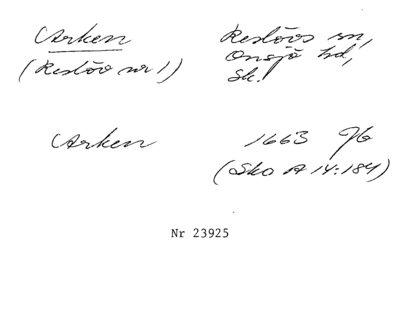 Arken Reslövs sn,
(Reslöv nr 1) Onsjö hd,
Sk.
Arken 1663 Jb
(Sko A 14:184)
Nr 23925